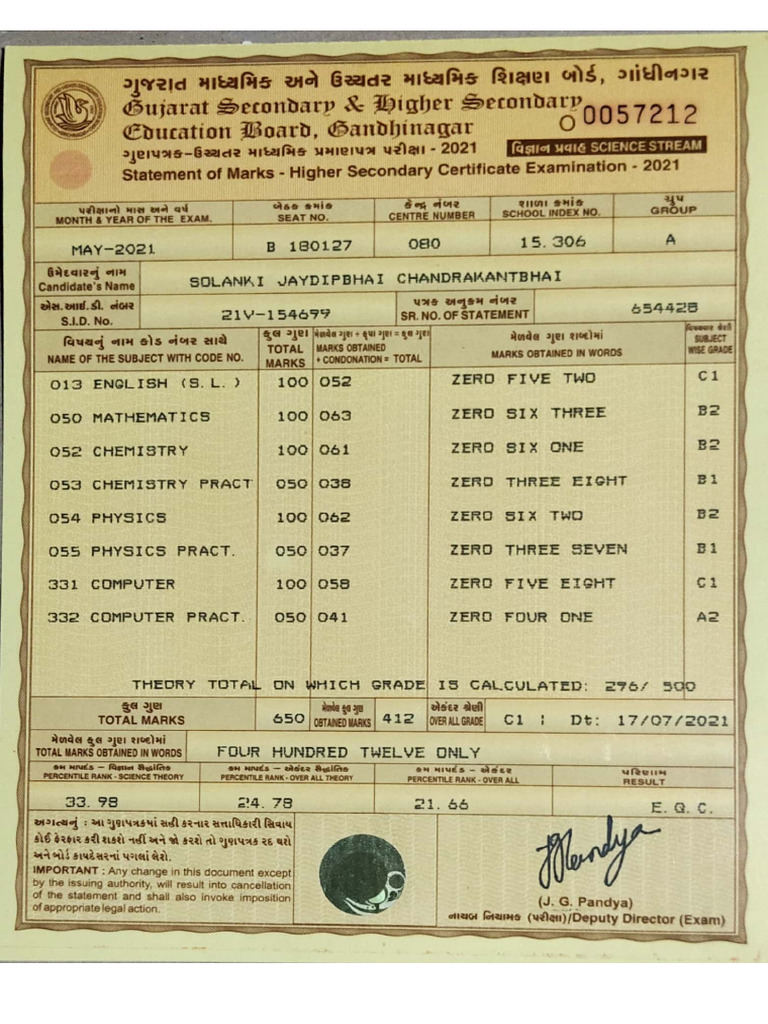 ગુજરાત માધ્યમિક અને ઉચ્ચતર માધ્યમિક શિક્ષણ બોર્ડ, ગાંધીનગર
Gujarat Secondary & Higher Secondary
Education Board, Gandhinagar
O 0057212
ગુણપત્રક-ઉચ્ચતર માધ્યમિક પ્રમાણપત્ર પરીક્ષા - 2021 વિજ્ઞાન પ્રવાહ SCIENCE STREAM
Statement of Marks - Higher Secondary Certificate Examination - 2021
પરીક્ષાનો માસ અને વર્ષ બેઠક ક્રમાંક કેન્દ્ર નંબર શાળા ક્રમાંક ગ્રુપ
MONTH & YEAR OF THE EXAM. SEAT NO. CENTRE NUMBER SCHOOL INDEX NO. GROUP
MAY-2021 B 180127 080 15.306 A
ઉમેદવારનું નામ
Candidate's Name SOLANKI JAYDIPBHAI CHANDRAKANTBHAI
એસ.આઈ.ડી. નંબર પત્રક અનુક્રમ નંબર
S.I.D. No. 21V-154699 SR. NO. OF STATEMENT 654428
વિષયનું નામ કોડ નંબર સાથે કુલ ગુણ મેળવેલ ગુણ + કૃપા ગુણ = કુલ ગુણ મેળવેલ ગુણ શબ્દોમાં વિષયવાર શ્રેણી
NAME OF THE SUBJECT WITH CODE NO. TOTAL MARKS MARKS OBTAINED + CONDONATION = TOTAL MARKS OBTAINED IN WORDS SUBJECT WISE GRADE
013 ENGLISH (S.L.) 100 052 ZERO FIVE TWO C1
050 MATHEMATICS 100 063 ZERO SIX THREE B2
052 CHEMISTRY 100 061 ZERO SIX ONE B2
053 CHEMISTRY PRACT 050 038 ZERO THREE EIGHT B1
054 PHYSICS 100 062 ZERO SIX TWO B2
055 PHYSICS PRACT. 050 037 ZERO THREE SEVEN B1
331 COMPUTER 100 058 ZERO FIVE EIGHT C1
332 COMPUTER PRACT. 050 041 ZERO FOUR ONE A2
THEORY TOTAL ON WHICH GRADE IS CALCULATED: 296/ 500
કુલ ગુણ મેળવેલ કુલ ગુણ એકંદર શ્રેણી
TOTAL MARKS 650 OBTAINED MARKS 412 OVER ALL GRADE C1 | Dt: 17/07/2021
મેળવેલ કુલ ગુણ શબ્દોમાં
TOTAL MARKS OBTAINED IN WORDS FOUR HUNDRED TWELVE ONLY
ક્રમ માપર્દંડ - વિજ્ઞાન સૈદ્ધાંતિક ક્રમ માપર્દંડ - એકંદર સૈદ્ધાંતિક ક્રમ માપર્દંડ - એકંદર પરિણામ
PERCENTILE RANK - SCIENCE THEORY PERCENTILE RANK - OVER ALL THEORY PERCENTILE RANK - OVER ALL RESULT
33.98 24.78 21.66 E.Q.C.
અગત્યનું : આ ગુણપત્રકમાં સહી કરનાર સત્તાધિકારી સિવાય
કોઈ ફેરફાર કરી શકશે નહીં અને જો કરશે તો ગુણપત્રક રદ થશે
અને બોર્ડ કાયદેસરનાં પગલાં લેશે.
IMPORTANT : Any change in this document except
by the issuing authority, will result into cancellation
of the statement and shall also invoke imposition
of appropriate legal action.
(J. G. Pandya)
નાયબ નિયામક (પરીક્ષા)/Deputy Director (Exam)